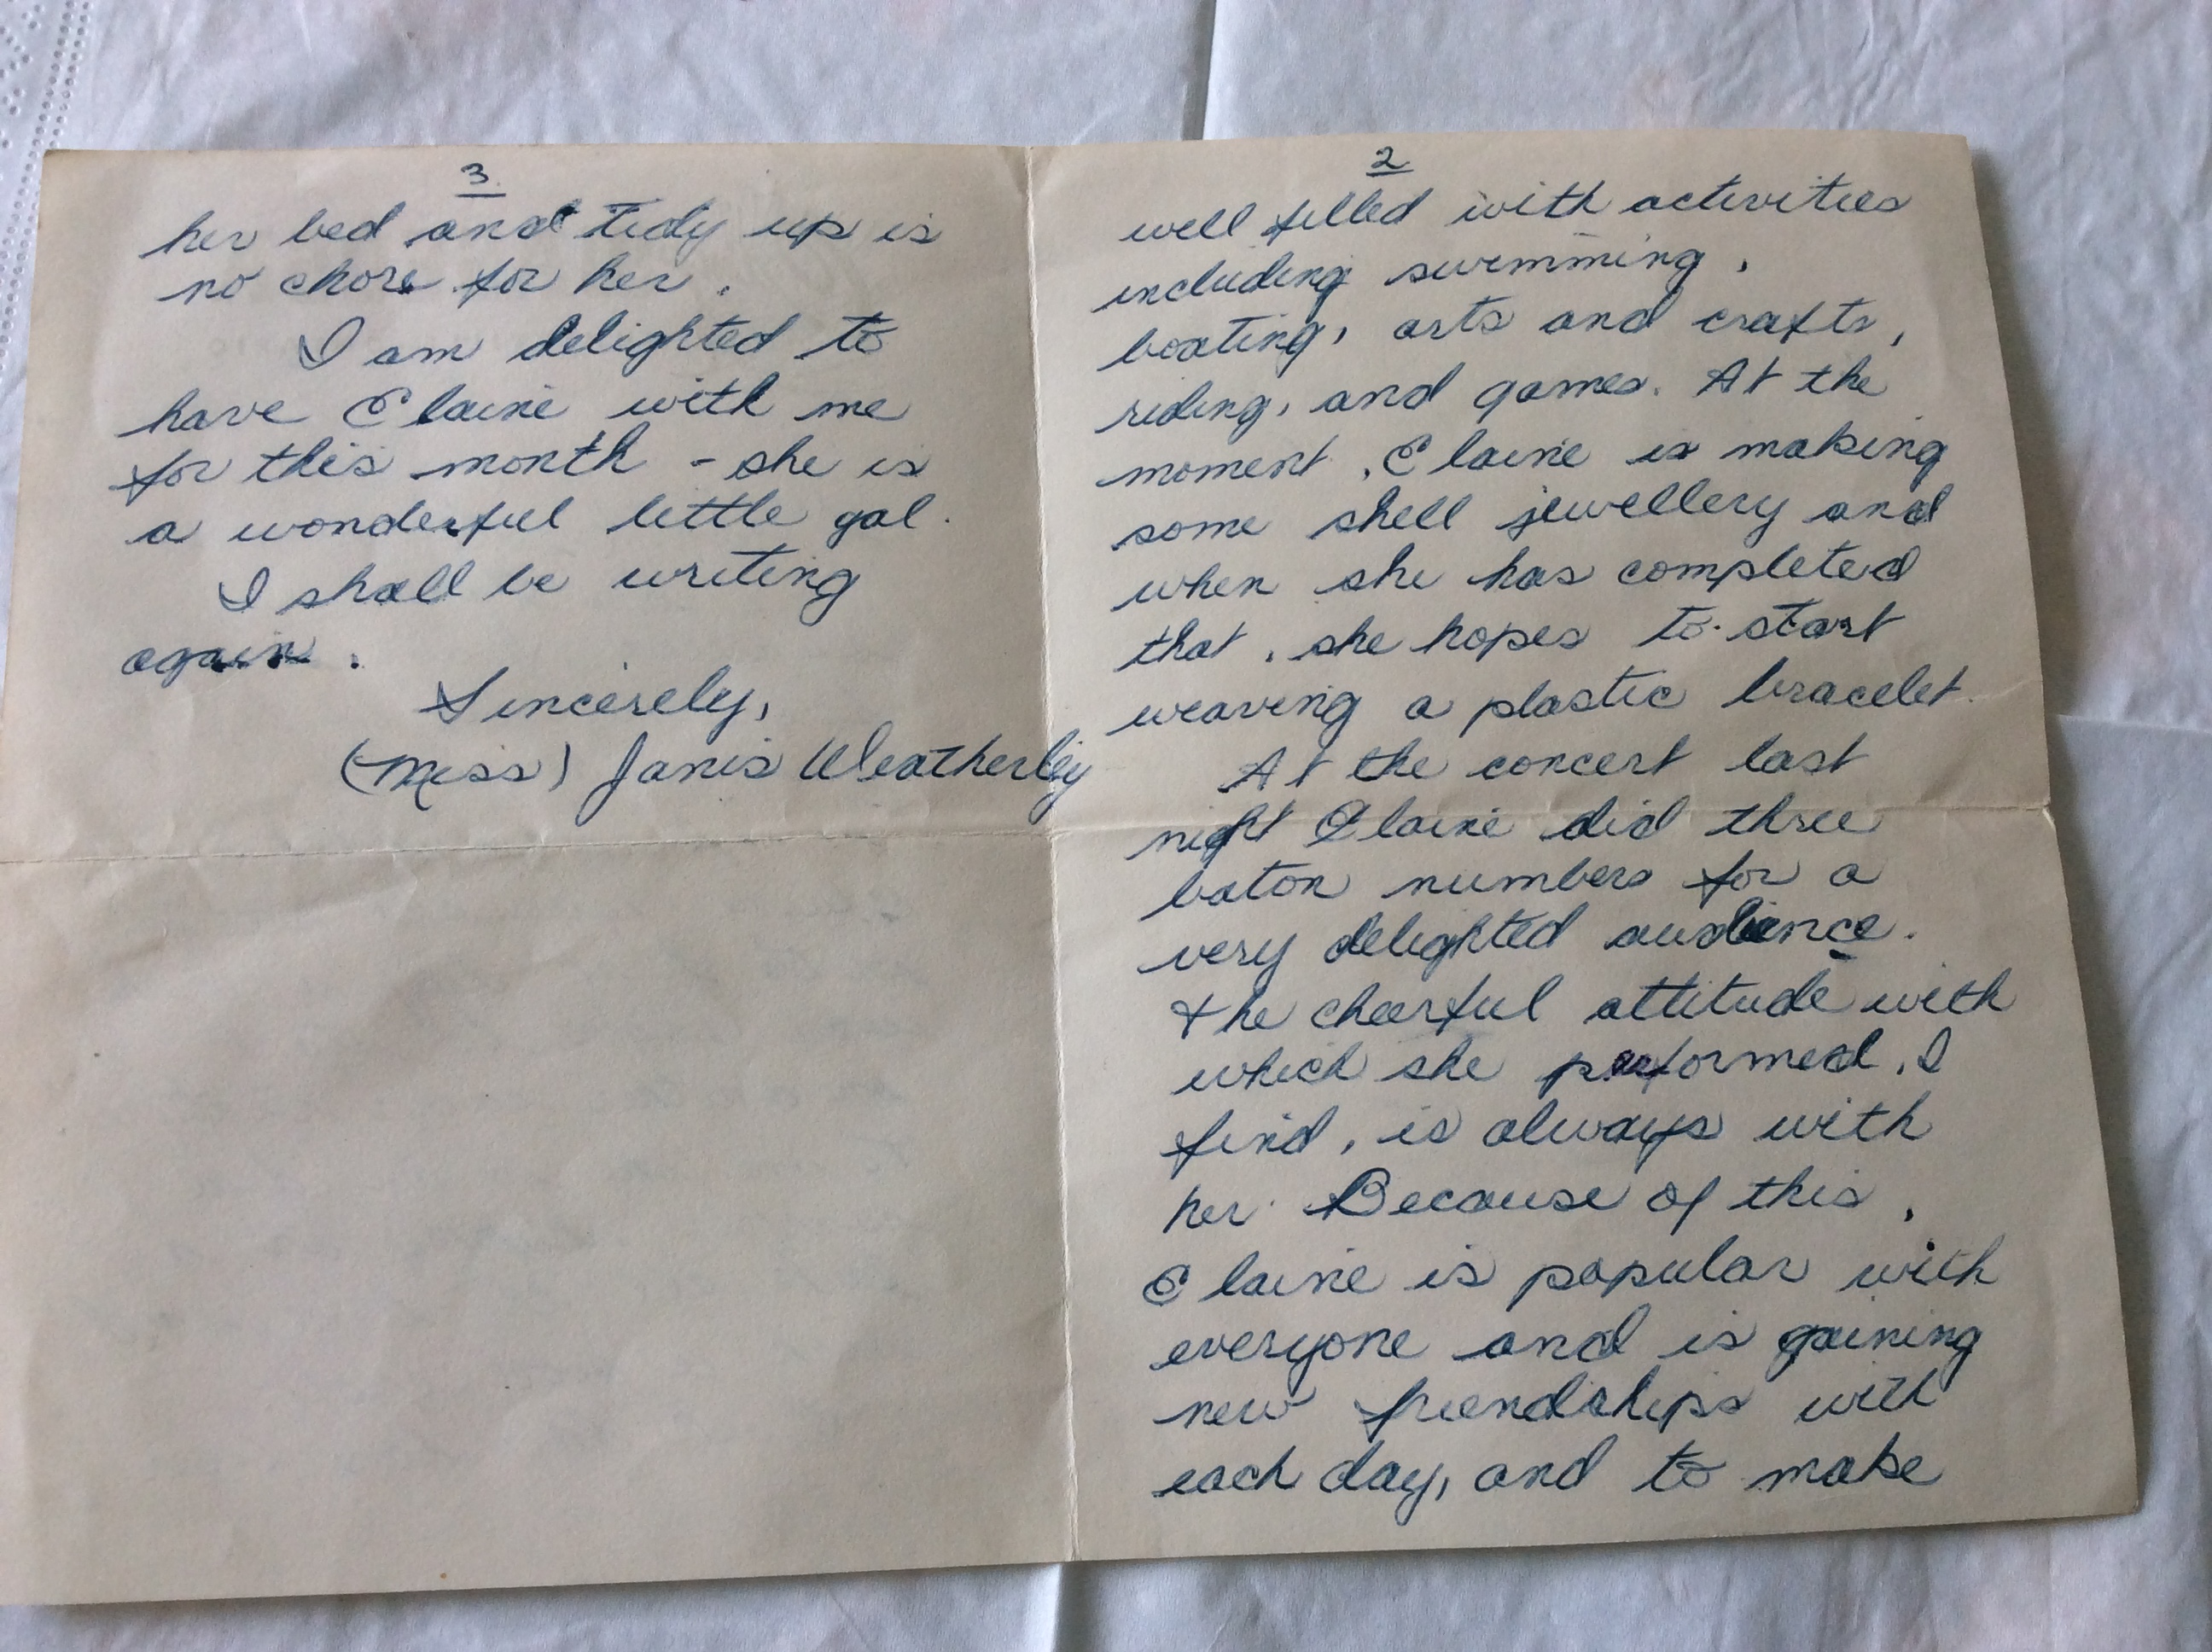 2
well filled with activities
including swimming,
boating, arts and crafts,
riding, and games. At the
moment, Elaine is making
some shell jewellery and
when she has completed
that, she hopes to start
weaving a plastic bracelet.
At the concert last
night Elaine did three
baton numbers for a
very delighted audience.
The cheerful attitude with
which she performed, I
find, is always with
her. Because of this,
Elaine is popular with
everyone and is gaining
new friendships with
each day, and to make
3
her bed and tidy up is
no chore for her.
I am delighted to
have Elaine with me
for this month - she is
a wonderful little gal.
I shall be writing
again.
Sincerely,
(Miss) Janis Weatherley